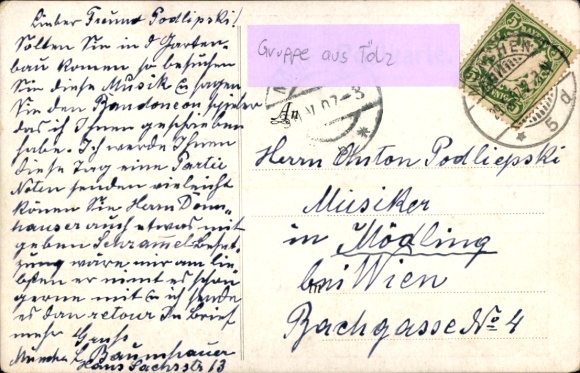 Lieber Freund Podlipski!
Solten Sie in d Garten-
bau komen so besuchen
Sie diese Musik & sagen
Sie den Bandoneon spieler
das ich Ihnen geschrieben
habe. Ich werde Ihnen
diese Tag eine Partie
Noten senden vieleicht
könen Sie Herrn Dönn-
hauser auch etwas mit
geben Schrammel Beset-
zung wäre mir am lie-
bsten er nimt es schon
gerne mit & ich sende
es dan retour In Brief
mehr Gruß
München Baumhauer
Hans Sachsstr 13
Gruppe aus Tölz
BAYERN
5
An
Herrn Anton Podliepski
Musiker
in Mödling
bei Wien
Bachgasse No 4